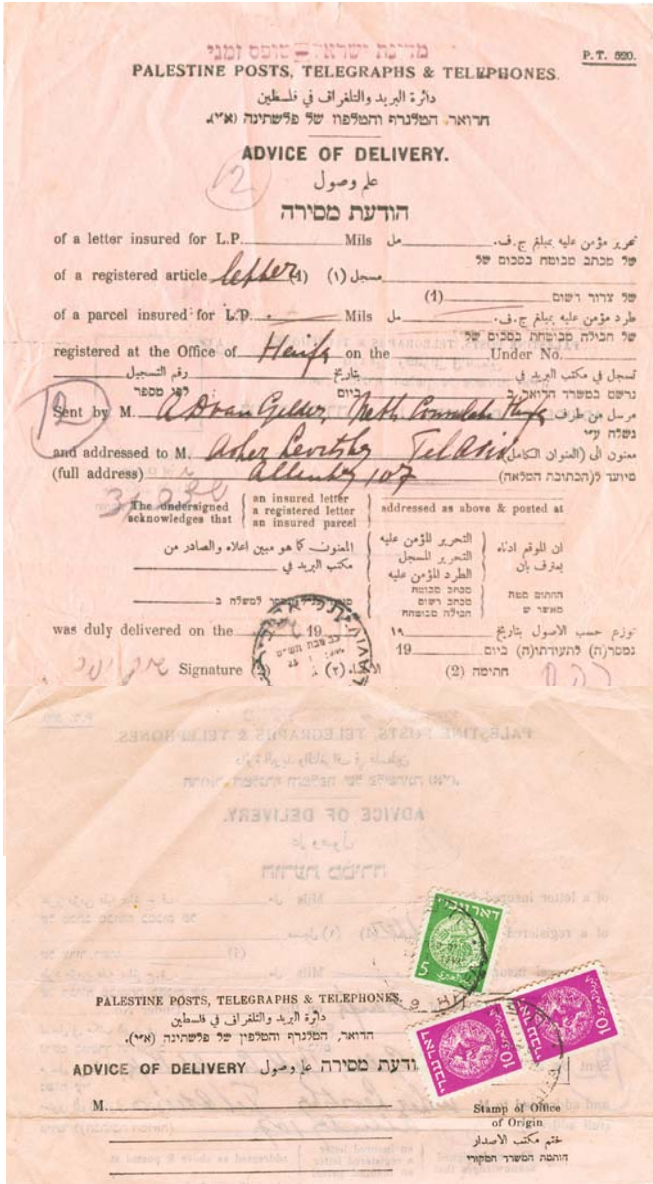 מדינת ישראל טופס זמני
P.T. 520.
PALESTINE POSTS, TELEGRAPHS & TELEPHONES.
دائرة البريد والتلغراف في فلسطين
הדואר, הטלגרף והטלפון של פלשתינה (א״י).
ADVICE OF DELIVERY.
علم وصول
הודעת מסירה
12
of a letter insured for L.P. Mils مل تحرير مؤمن عليه بمبلغ ج.ف.
של מכתב מבוטח בסכום של
of a registered article letter (1) مسجل (١)
של צרור רשום (1)
of a parcel insured for L.P. Mils مل طرد مؤمن عليه بمبلغ ج.ف.
של חבילה מבוטחת בסכום של
registered at the Office of Haifa on the Under No.
تسجل في مكتب البريد في بتاريخ رقم التسجيل
נרשם במשרד הדואר ב ביום לפי מספר
12
Sent by M. A D van Gelder, Neth. Consulate Haifa مرسل من طرف
נשלח ע״י
and addressed to M. Asher Levitsky Tel Aviv معنون الى (العنوان الكامل)
(full address) Allenby 107 מיועד ל(הכתובת המלאה)
The undersigned acknowledges that
an insured letter
a registered letter
an insured parcel
addressed as above & posted at
المعنون كما هو مبين اعلاه والصادر من
مكتب البريد في
التحرير المؤمن عليه
التحرير المسجل
الطرد المؤمن عليه
ان الموقع ادناه
يعترف بان
מכתב מבוטח
מכתב רשום
חבילה מבוטחה
החתום מטה
מאשר ש
למשלה ב
was duly delivered on the 19 ١٩ توزع حسب الاصول بتاريخ
נמסר(ה) לתעודתו(ה) ביום 19
Signature (٢) חתימה (2)
דאר עברי
5
דאר עברי
10
דאר עברי
10
PALESTINE POSTS, TELEGRAPHS & TELEPHONES.
دائرة البريد والتلغراف في فلسطين
הדואר, הטלגרף והטלפון של פלשתינה (א״י).
ADVICE OF DELIVERY علم وصول הודעת מסירה
M.
Stamp of Office
of Origin
ختم مكتب الاصدار
חותמת המשרד המקורי